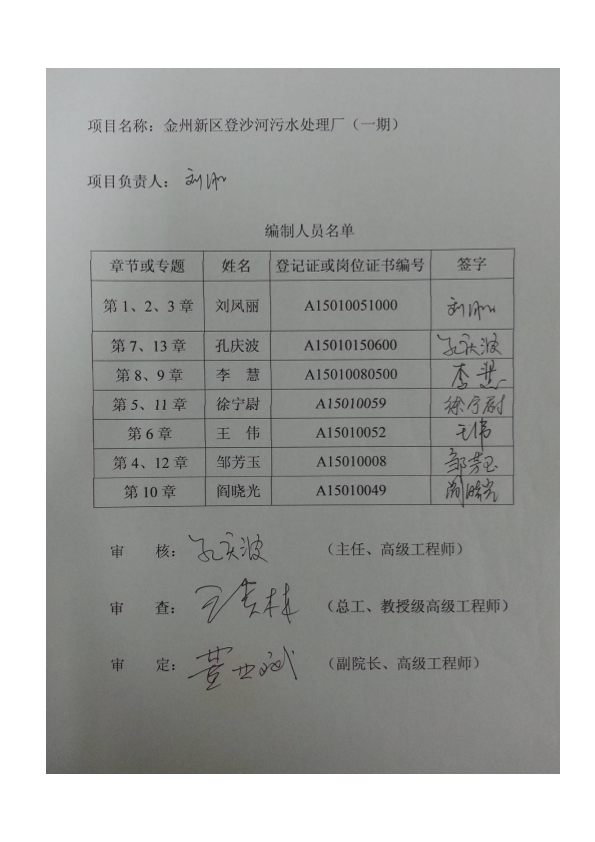 项目名称：金州新区登沙河污水处理厂（一期）
项目负责人： 刘凤丽
编制人员名单
章节或专题 姓名 登记证或岗位证书编号 签字
第1、2、3章 刘凤丽 A15010051000 刘凤丽
第7、13章 孔庆波 A15010150600 孔庆波
第8、9章 李 慧 A15010080500 李慧
第5、11章 徐宁尉 A15010059 徐宁尉
第6章 王 伟 A15010052 王伟
第4、12章 邹芳玉 A15010008 邹芳玉
第10章 阎晓光 A15010049 阎晓光
审 核： 孔庆波 （主任、高级工程师）
审 查： （总工、教授级高级工程师）
审 定： （副院长、高级工程师）